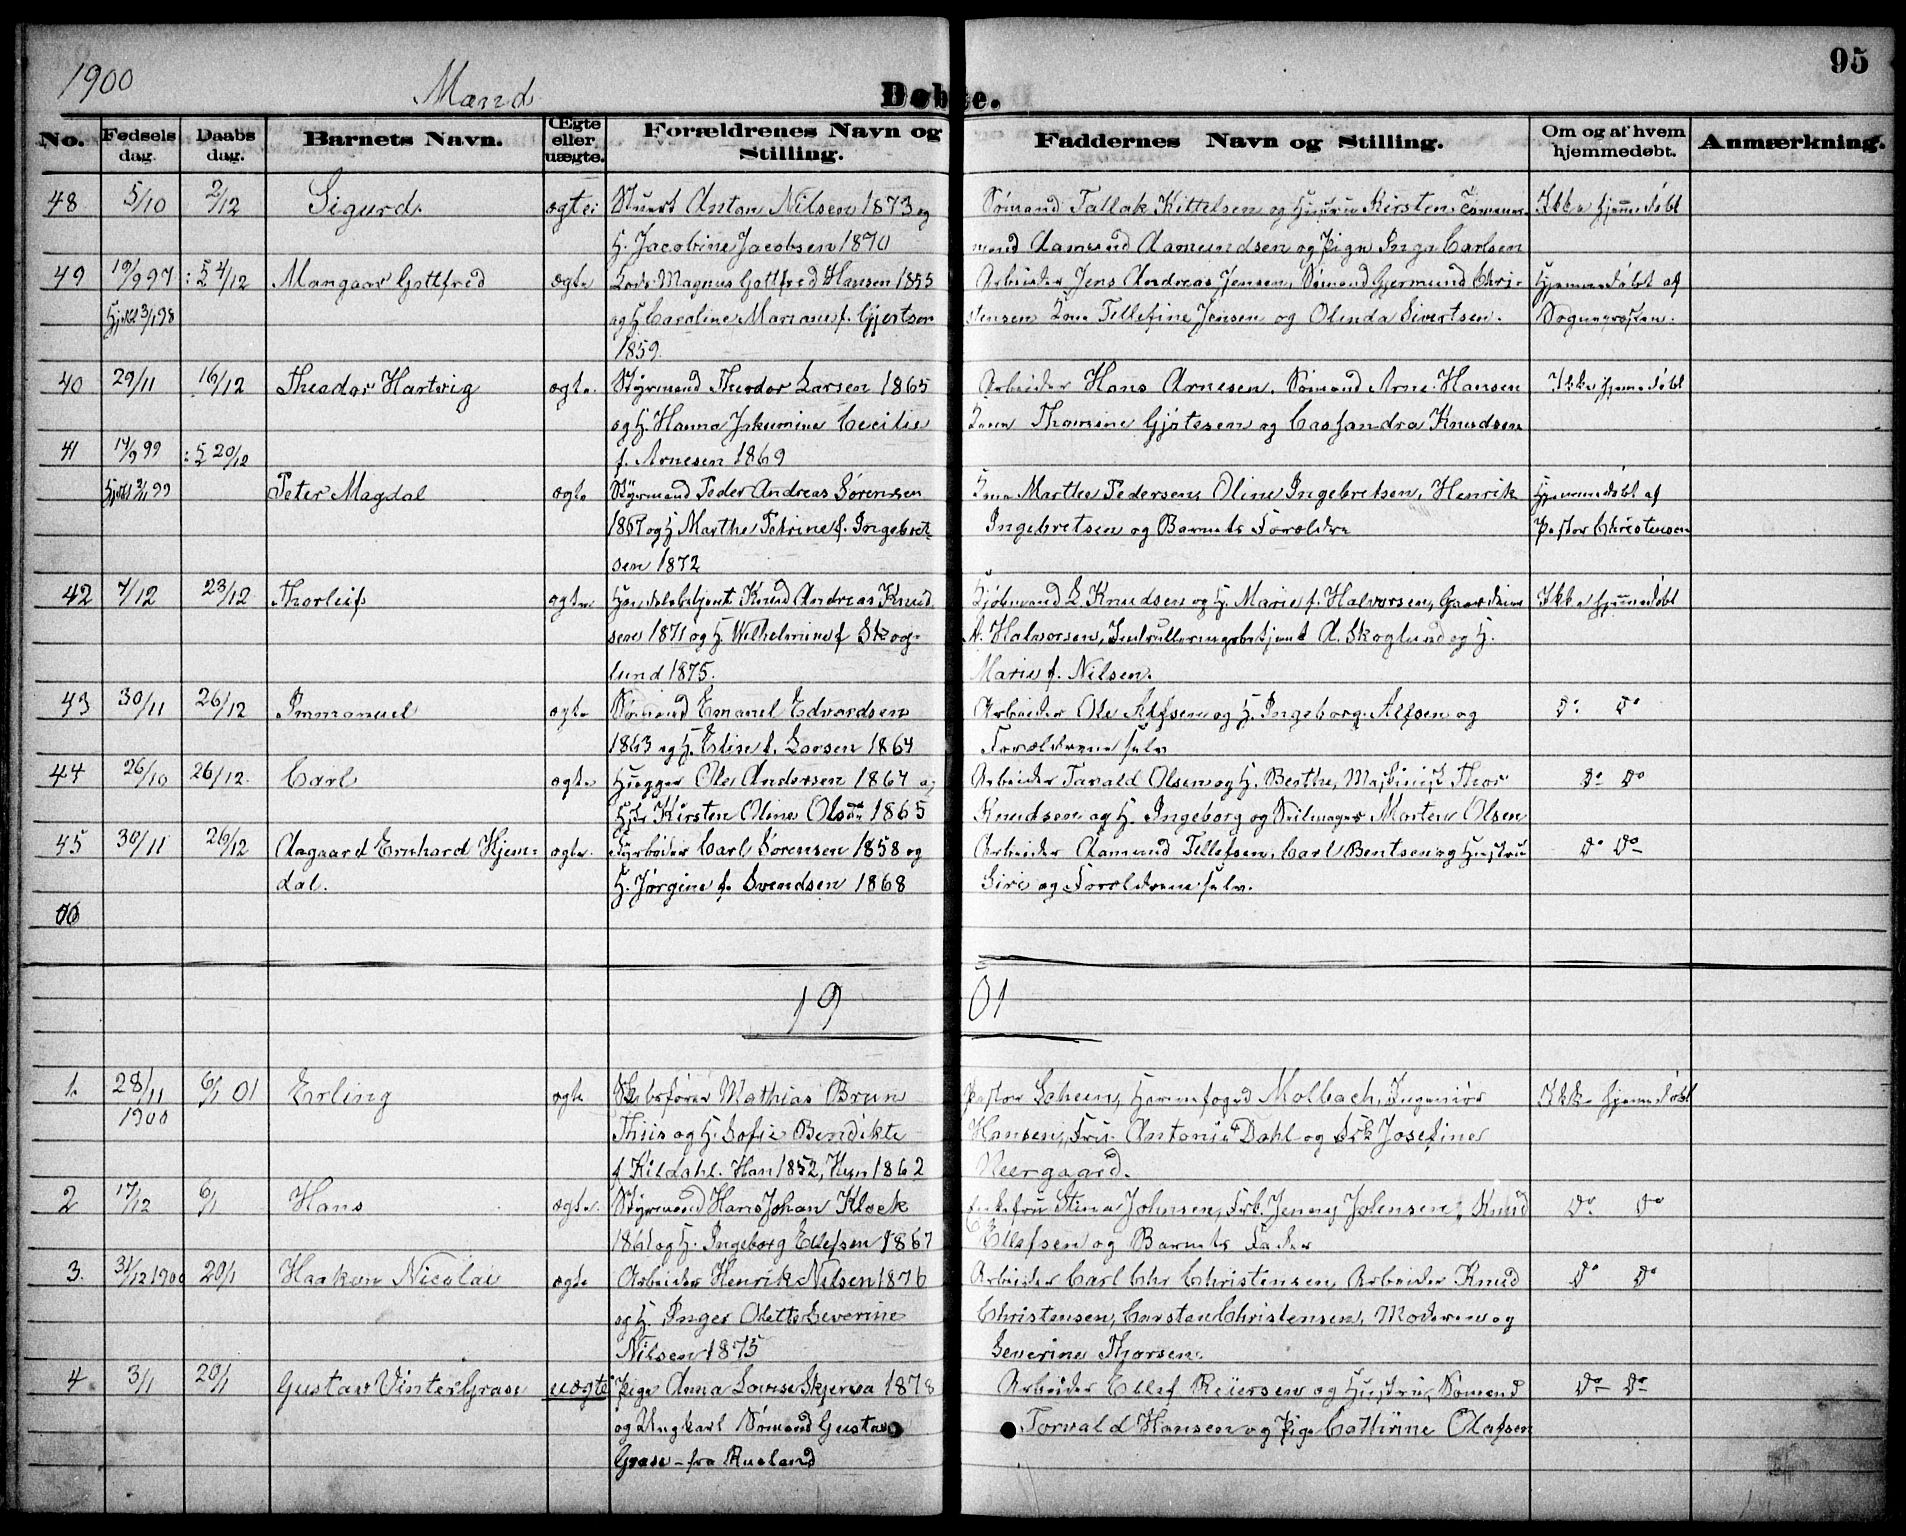 95
1900 Mænd
Døbte.
No. Fødsels dag. Daabs dag. Barnets Navn. Ægte eller uægte. Forældrenes Navn og Stilling. Faddernes Navn og Stilling. Om og af hvem hjemmedøbt. Anmærkning.
48 5/10 2/12 Sigurd. ægte Anton Nilsen 1873 og Sømand Tallak Kittelsen og Hustru Kirsten, Ikke hjemmedøbt
H. Jacobine Jacobsen 1870 mand Aamund Aamundsen og Pige Inga Carlsen
49 19/9 97 4/12 Gottfred ægte Lods Magnus Gottfred Hansen 1855 Arbeider Jens Andreas Jensen, Sømand Gjermund Chri-
Hjdbt 3/1 98 og H. Caroline Mariane f. Gjertsen stensen Kone Tellefine Jensen og Olenda Sivertsen. Hjemmedøbt af Sognepresten.
1859.
40 29/11 16/12 Theodor Hartvig ægte. Styrmand Theodor Larsen 1865 Arbeider Hans Arnesen, Sømand Arne Hansen Ikke hjemmedøbt
og H. Hanna Cecilie Kone Thomine Gjøtesen og Cassandra Knudsen
41 14/9 99 20/12 f. Arnesen 1869
Peter Magdal ægte Styrmand Peder Andreas Sørensen Kone Marthe Pedersen, Oline Ingebretsen, Henrik Hjemmedøbt af
1867 og H. Marthe Petrine f. Ingebret- Ingebretsen og Barnets Forældre Pastor Christensen
sen 1872
42 7/12 23/12 Thorleif ægte Handelsbetjent Knud Andreas Knud- Kjøbmand L. Knudsen og H. Marie f. Halvorsen, Ikke hjemmedøbt
sen 1871 og H. Wilhelmine f. Skog- A. Halvorsen, A. Skoglund og H.
lund 1875. Marie f. Nilsen.
43 30/11 26/12 Immanuel ægte Sømand Emanuel Edvardsen Arbeider Ole Alfsen og H. Ingeborg Alfsen og Do Do
1863 og H. Elise f. Larsen 1864 Forældrene selv
44 26/10 26/12. Carl ægte Hugger Ole Andersen 1867 og Arbeider Tarald Olsen og H. Berthe, Maskinist Thor Do Do
Kirsten Oline Olsen 1865 Knudsen og H. Ingeborg og Seilmager Morten Olsen
45 30/11 26/12 Aagaard Ernhard Hjem- ægte. Carl Sørensen 1858 og Arbeider Aamund Tellefsen, Carl Bentsen og Hustru Do Do
dal. H. Jørgine f. Svendsen 1868 Siri og Forældrene selv.
1901
1. 28/11 6/1 01 Erling ægte Skibsfører Mathias Brun Pastor Scheen, Havnefoged Molbach, Ingeniør Ikke hjemmedøbt
1900 Thiis og H. Sofie Bendikte Hansen, Fru Antonie Dahl og Frk Josefine
f. Kildahl. Han 1852, Hun 1862 Neergaard.
2 17/12 6/1 Hans ægte. Styrmand Hans Johan Klock Enkefru Stina Johnsen, Frk. Jenny Johnsen, Knud Do Do
1861 og H. Ingeborg Ellefsen 1867 Ellefsen og Barnets Fader
3. 31/12 1900 20/1 Haakon Nicolai ægte Arbeider Henrik Nilsen 1876 Arbeider Carl Chr Christensen, Arbeider Knud Do Do
og H. Inger Olette Severine Christensen, Carsten Christensen, Moderen og
Nilsen 1875 Severine Thorsen.
4 3/1 20/1 Gustav Vinter Grase uægte Pige Anna Lovise Skjerva 1878 Arbeider Ellef Reiersen og Hustru, Sømand Do Do
og Ungkarl Sømand Gustav Torvald Hansen og Pige Cathrine Olafsen
Grase - fra Rusland